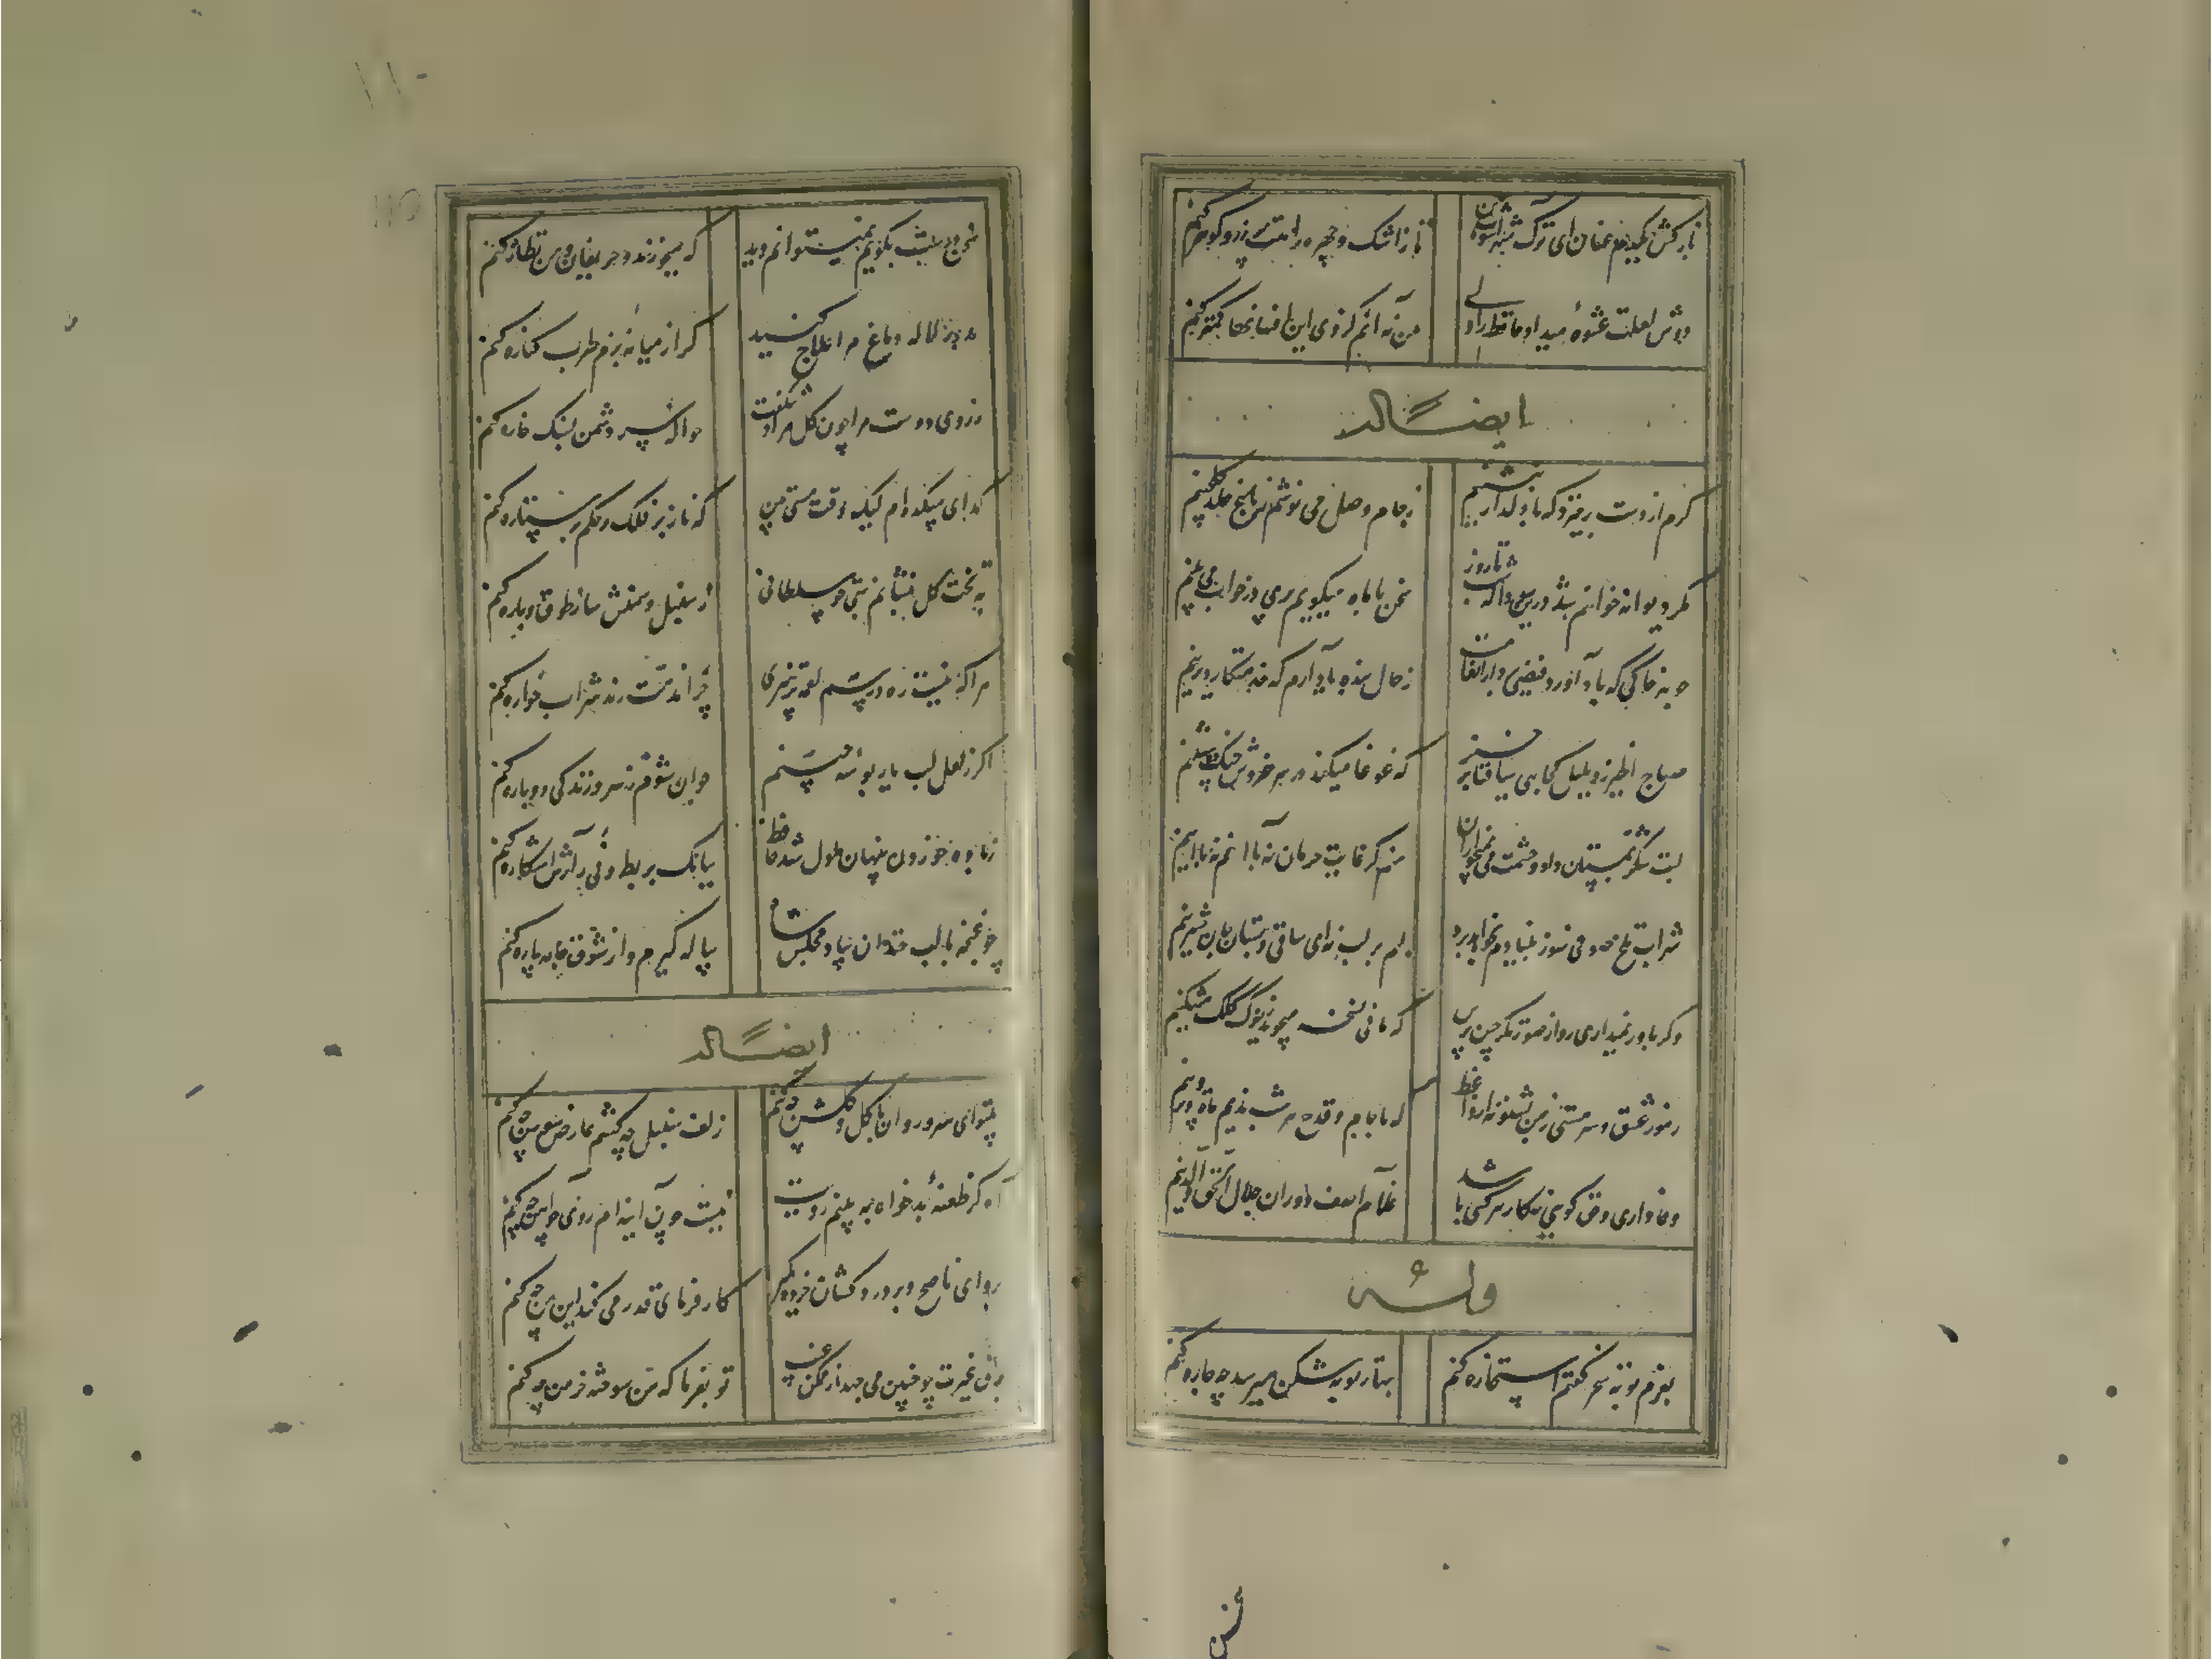 باز کش یکدم عنان ای ترک شهرآشوب من
تا ز اشک و چهره راهت پر زر و گوهر کنم
دوش لعلت عشوهٔ میداد حافظ را ولی
من نه آنم کز وی این افسانها باور کنم
ایضاً له
گرم از دست برخیزد که با دلدار بنشینم
ز جام وصل می نوشم ز باغ خلد گل چینم
مگر دیوانه خواهم شد درین سودا که شب تا روز
سخن با ماه میگویم پری در خواب می بینم
چو هر خاکی که باد آورد فیضی داد از انعامت
ز حال بنده یاد آرم که خدمتگار دیرینم
صباح الخیر زد بلبل کجایی ساقیا برخیز
که غوغا میکند در سر خروش چنگ دوشینم
لبت شکر بمستان داد و چشمت می بمیخواران
منم کز غایت حرمان نه با آنم نه با اینم
شراب تلخ صوفی سوز بنیادم بخواهد برد
لبم بر لب نه ای ساقی و بستان جان شیرینم
وگر باور نمیداری رو از صورتگر چین پرس
که مانی نسخه میجوید ز نوک کلک مشکینم
رموز عشق و سرمستی ز من بشنو نه از واعظ
که با جام و قدح هر شب ندیم ماه و پروینم
وفاداری و حق گویی نه کار هر کسی باشد
غلام آصف دوران جلال الحق والدینم
وله
بعزم توبه سحر گفتم استخاره کنم
بهار توبه شکن میرسد چه چاره کنم
سخن درست بگویم نمیتوانم دید
که میخورند حریفان و من نظاره کنم
بدور لاله دماغ مرا علاج کنید
گر از میانهٔ بزم طرب کناره کنم
ز روی دوست مرا چون گل مراد شکفت
حواله سر دشمن بسنگ خاره کنم
گدای میکده ام لیک وقت مستی بین
که ناز بر فلک و حکم بر ستاره کنم
به تخت گل بنشانم بتی چو سلطانی
ز سنبل و سمنش ساز طوق و یاره کنم
مرا که نیست ره و رسم لقمه پرهیزی
چرا مذمت رند شراب خواره کنم
اگر ز لعل لب یار بوسه چینم
جوان شوم ز سر و زندگی دوباره کنم
ز باده خوردن پنهان ملول شد حافظ
ببانگ بربط و نی رازش آشکاره کنم
چو غنچه با لب خندان بیاد مجلس شاه
پیاله گیرم و از شوق جامه پاره کنم
ایضاً له
بیتو ای سرو روان با گل و گلشن چه کنم
زلف سنبل چه کشم عارض سوسن چه کنم
آه کز طعنهٔ بدخواه ندیدم رویت
نیست چون آینه ام روی ز آهن چه کنم
برو ای ناصح و بر دردکشان خرده مگیر
کارفرمای قدر می کند این من چه کنم
برق غیرت چو چنین می جهد از مکمن غیب
تو بفرما که من سوخته خرمن چه کنم